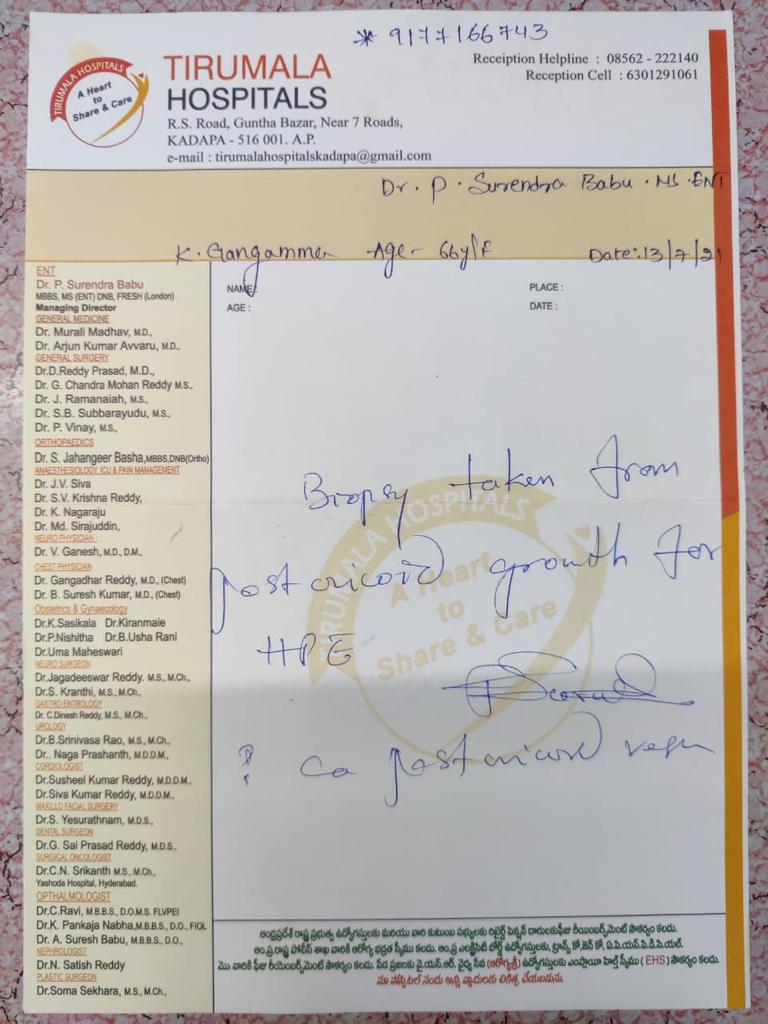 * 9177166743
TIRUMALA HOSPITALS
A Heart
to
Share & Care
TIRUMALA
HOSPITALS
R.S. Road, Guntha Bazar, Near 7 Roads,
KADAPA - 516 001. A.P.
e-mail : tirumalahospitalskadapa@gmail.com
Receiption Helpline : 08562 - 222140
Reception Cell : 6301291061
Dr. P. Surendra Babu . MS . ENT
K. Gangamma Age- 66y/F Date: 13/7/21
NAME: PLACE :
AGE : DATE :
ENT
Dr. P. Surendra Babu
MBBS, MS (ENT) DNB, FRESH (London)
Managing Director
GENERAL MEDICINE
Dr. Murali Madhav, M.D.,
Dr. Arjun Kumar Avvaru, M.D.,
GENERAL SURGERY
Dr.D.Reddy Prasad, M.D.,
Dr. G. Chandra Mohan Reddy M.S.,
Dr. J. Ramanaiah, M.S.,
Dr. S.B. Subbarayudu, M.S.,
Dr. P. Vinay, M.S.,
ORTHOPAEDICS
Dr. S. Jahangeer Basha,MBBS,DNB(Ortho)
ANAESTHESIOLOGY, ICU & PAIN MANAGEMENT
Dr. J.V. Siva
Dr. S.V. Krishna Reddy,
Dr. K. Nagaraju
Dr. Md. Sirajuddin,
NEURO PHYSICIAN
Dr. V. Ganesh, M.D., D.M.,
CHEST PHYSICIAN
Dr. Gangadhar Reddy, M.D., (Chest)
Dr. B. Suresh Kumar, M.D., (Chest)
Obstetrics & Gynaecology
Dr.K.Sasikala Dr.Kiranmaie
Dr.P.Nishitha Dr.B.Usha Rani
Dr.Uma Maheswari
NEURO SURGEON
Dr.Jagadeeswar Reddy. M.S., M.Ch.,
Dr.S. Kranthi, M.S., M.Ch.,
GASTRO ENTROLOGY
Dr. C.Dinesh Reddy, M.S., M.Ch.,
UROLOGY
Dr.B.Srinivasa Rao, M.S., M.Ch.,
Dr.. Naga Prashanth, M.D.D.M.,
CORDIOLOGIST
Dr.Susheel Kumar Reddy, M.D.D.M.,
Dr.Siva Kumar Reddy, M.D.D.M.,
MAXILLO FACIAL SURGERY
Dr.S. Yesurathnam, M.D.S.,
DENTAL SURGEON
Dr.G. Sai Prasad Reddy, M.D.S.,
SURGICAL ONCOLOGIST
Dr.C.N. Srikanth M.S., M.Ch.,
Yashoda Hospital, Hyderabad.
OPTHALMOLOGIST
Dr.C.Ravi, M.B.B.S., D.O.M.S. FLVPEI
Dr.K. Pankaja Nabha,M.B.B.S., D.O., FIOL
Dr. A. Suresh Babu, M.B.B.S., D.O.,
NEPHROLOGIST
Dr.N. Satish Reddy
PLASTIC SURGEON
Dr.Soma Sekhara, M.S., M.Ch.,
Biopsy taken from
post cricoid growth for
HPE
? Ca post cricoid
TIRUMALA HOSPITALS
A Heart
to
Share & Care
ఆంధ్రప్రదేశ్ రాష్ట్ర ప్రభుత్వ ఉద్యోగస్తులకు మరియు వారి కుటుంబ సభ్యులకు
(ఆరోగ్యశ్రీ) ఉద్యోగస్తులకు ఎంప్లాయీ హెల్త్ స్కీము ( EHS ) సౌకర్యం కలదు.
మా హాస్పిటల్ నందు అన్ని వ్యాధులకు చికిత్స చేయబడును.